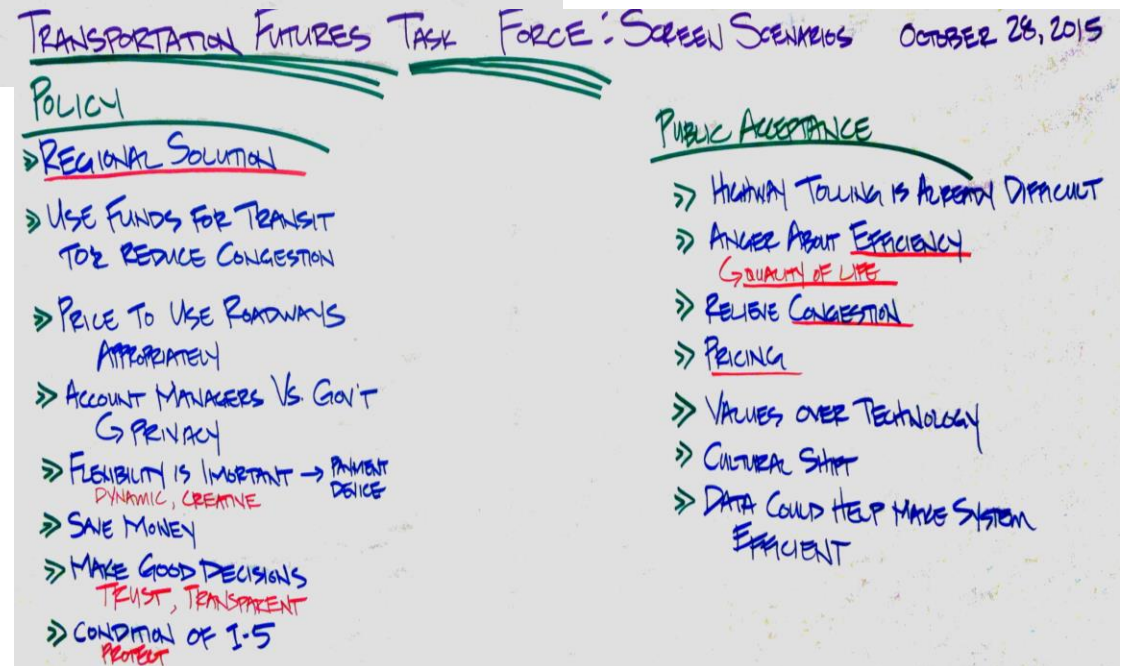 TRANSPORTATION FUTURES TASK FORCE: SCREEN SCENARIOS OCTOBER 28, 2015
POLICY
» REGIONAL SOLUTION
» USE FUNDS FOR TRANSIT
TO REDUCE CONGESTION
» PRICE TO USE ROADWAYS
APPROPRIATELY
» ACCOUNT MANAGERS VS. GOV'T
↳ PRIVACY
» FLEXIBILITY IS IMORTANT → PAYMENT
DEVICE
DYNAMIC, CREATIVE
» SAVE MONEY
» MAKE GOOD DECISIONS
TRUST, TRANSPARENT
» CONDITION OF I-5
PROTECT
PUBLIC ACCEPTANCE
» HIGHWAY TOLLING IS ALREADY DIFFICULT
» ANGER ABOUT EFFICIENCY
↳ QUALITY OF LIFE
» RELIEVE CONGESTION
» PRICING
» VALUES OVER TECHNOLOGY
» CULTURAL SHIFT
» DATA COULD HELP MAKE SYSTEM
EFFICIENT